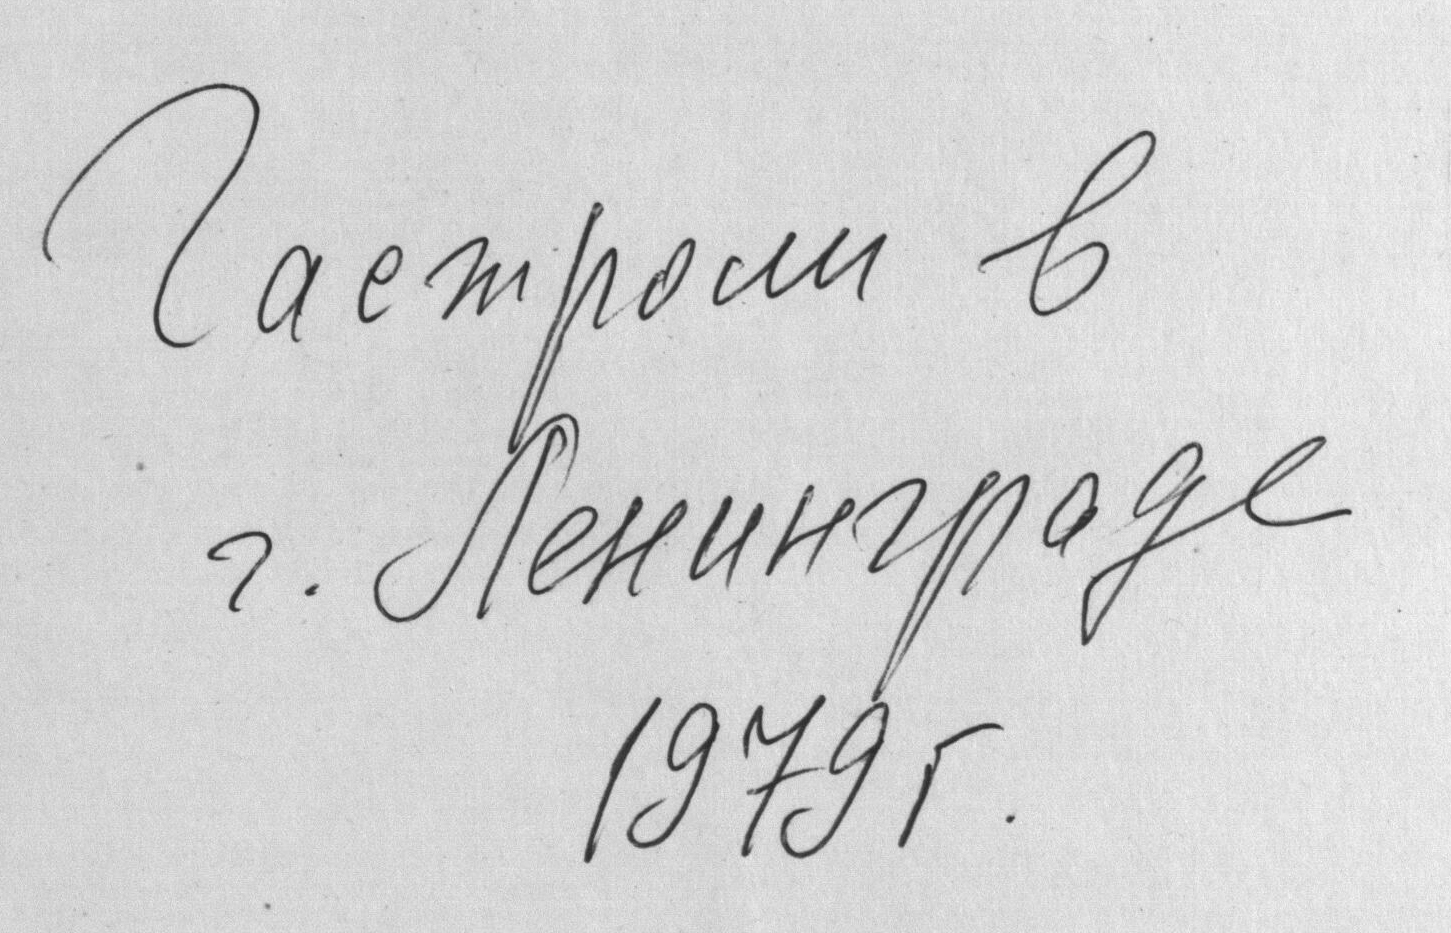 Гастроли в
г. Ленинграде
1979г.